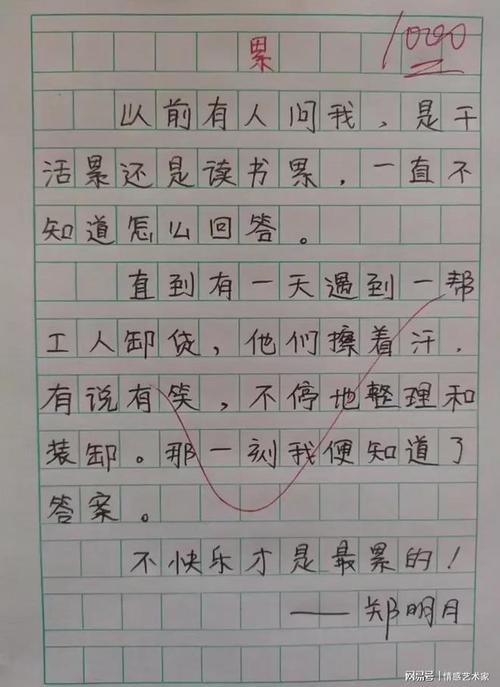 累
1000
以前有人问我，是干
活累还是读书累，一直不
知道怎么回答。
直到有一天遇到一帮
工人卸货，他们擦着汗，
有说有笑，不停地整理和
装卸。那一刻我便知道了
答案。
不快乐才是最累的！
——郑明月
网易号 | 情感艺术家